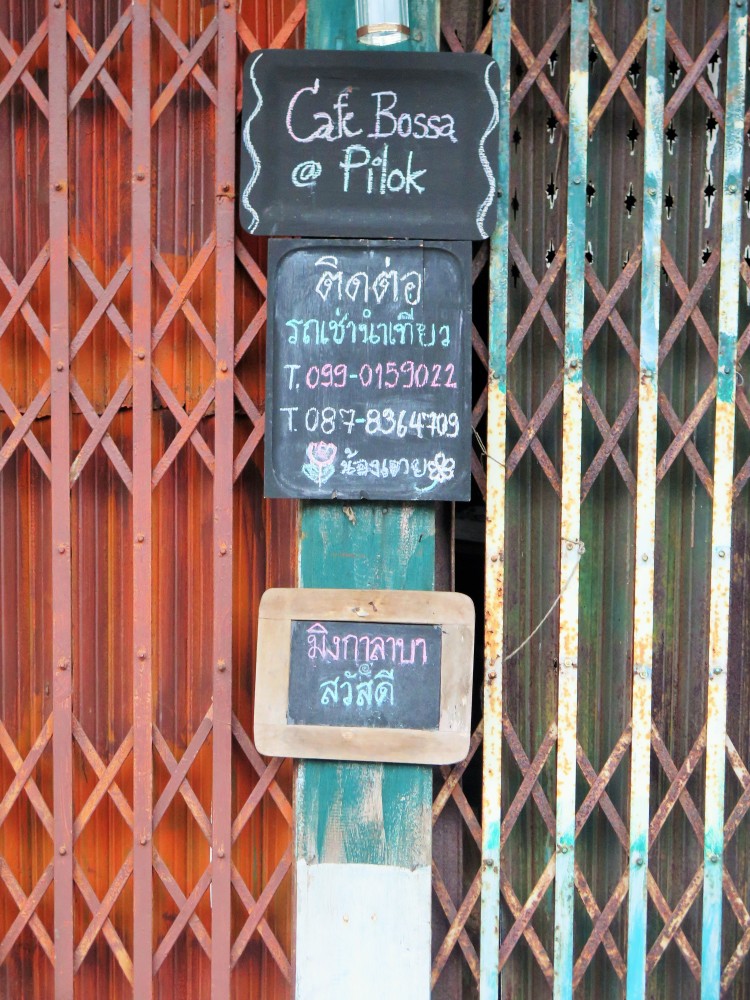 Cafe Bossa
@ Pilok
ติดต่อ
รถเช่านำเที่ยว
T. 099-0159022
T. 087-8364709
น้อง
มิงกาลาบา
@
สวัสดี